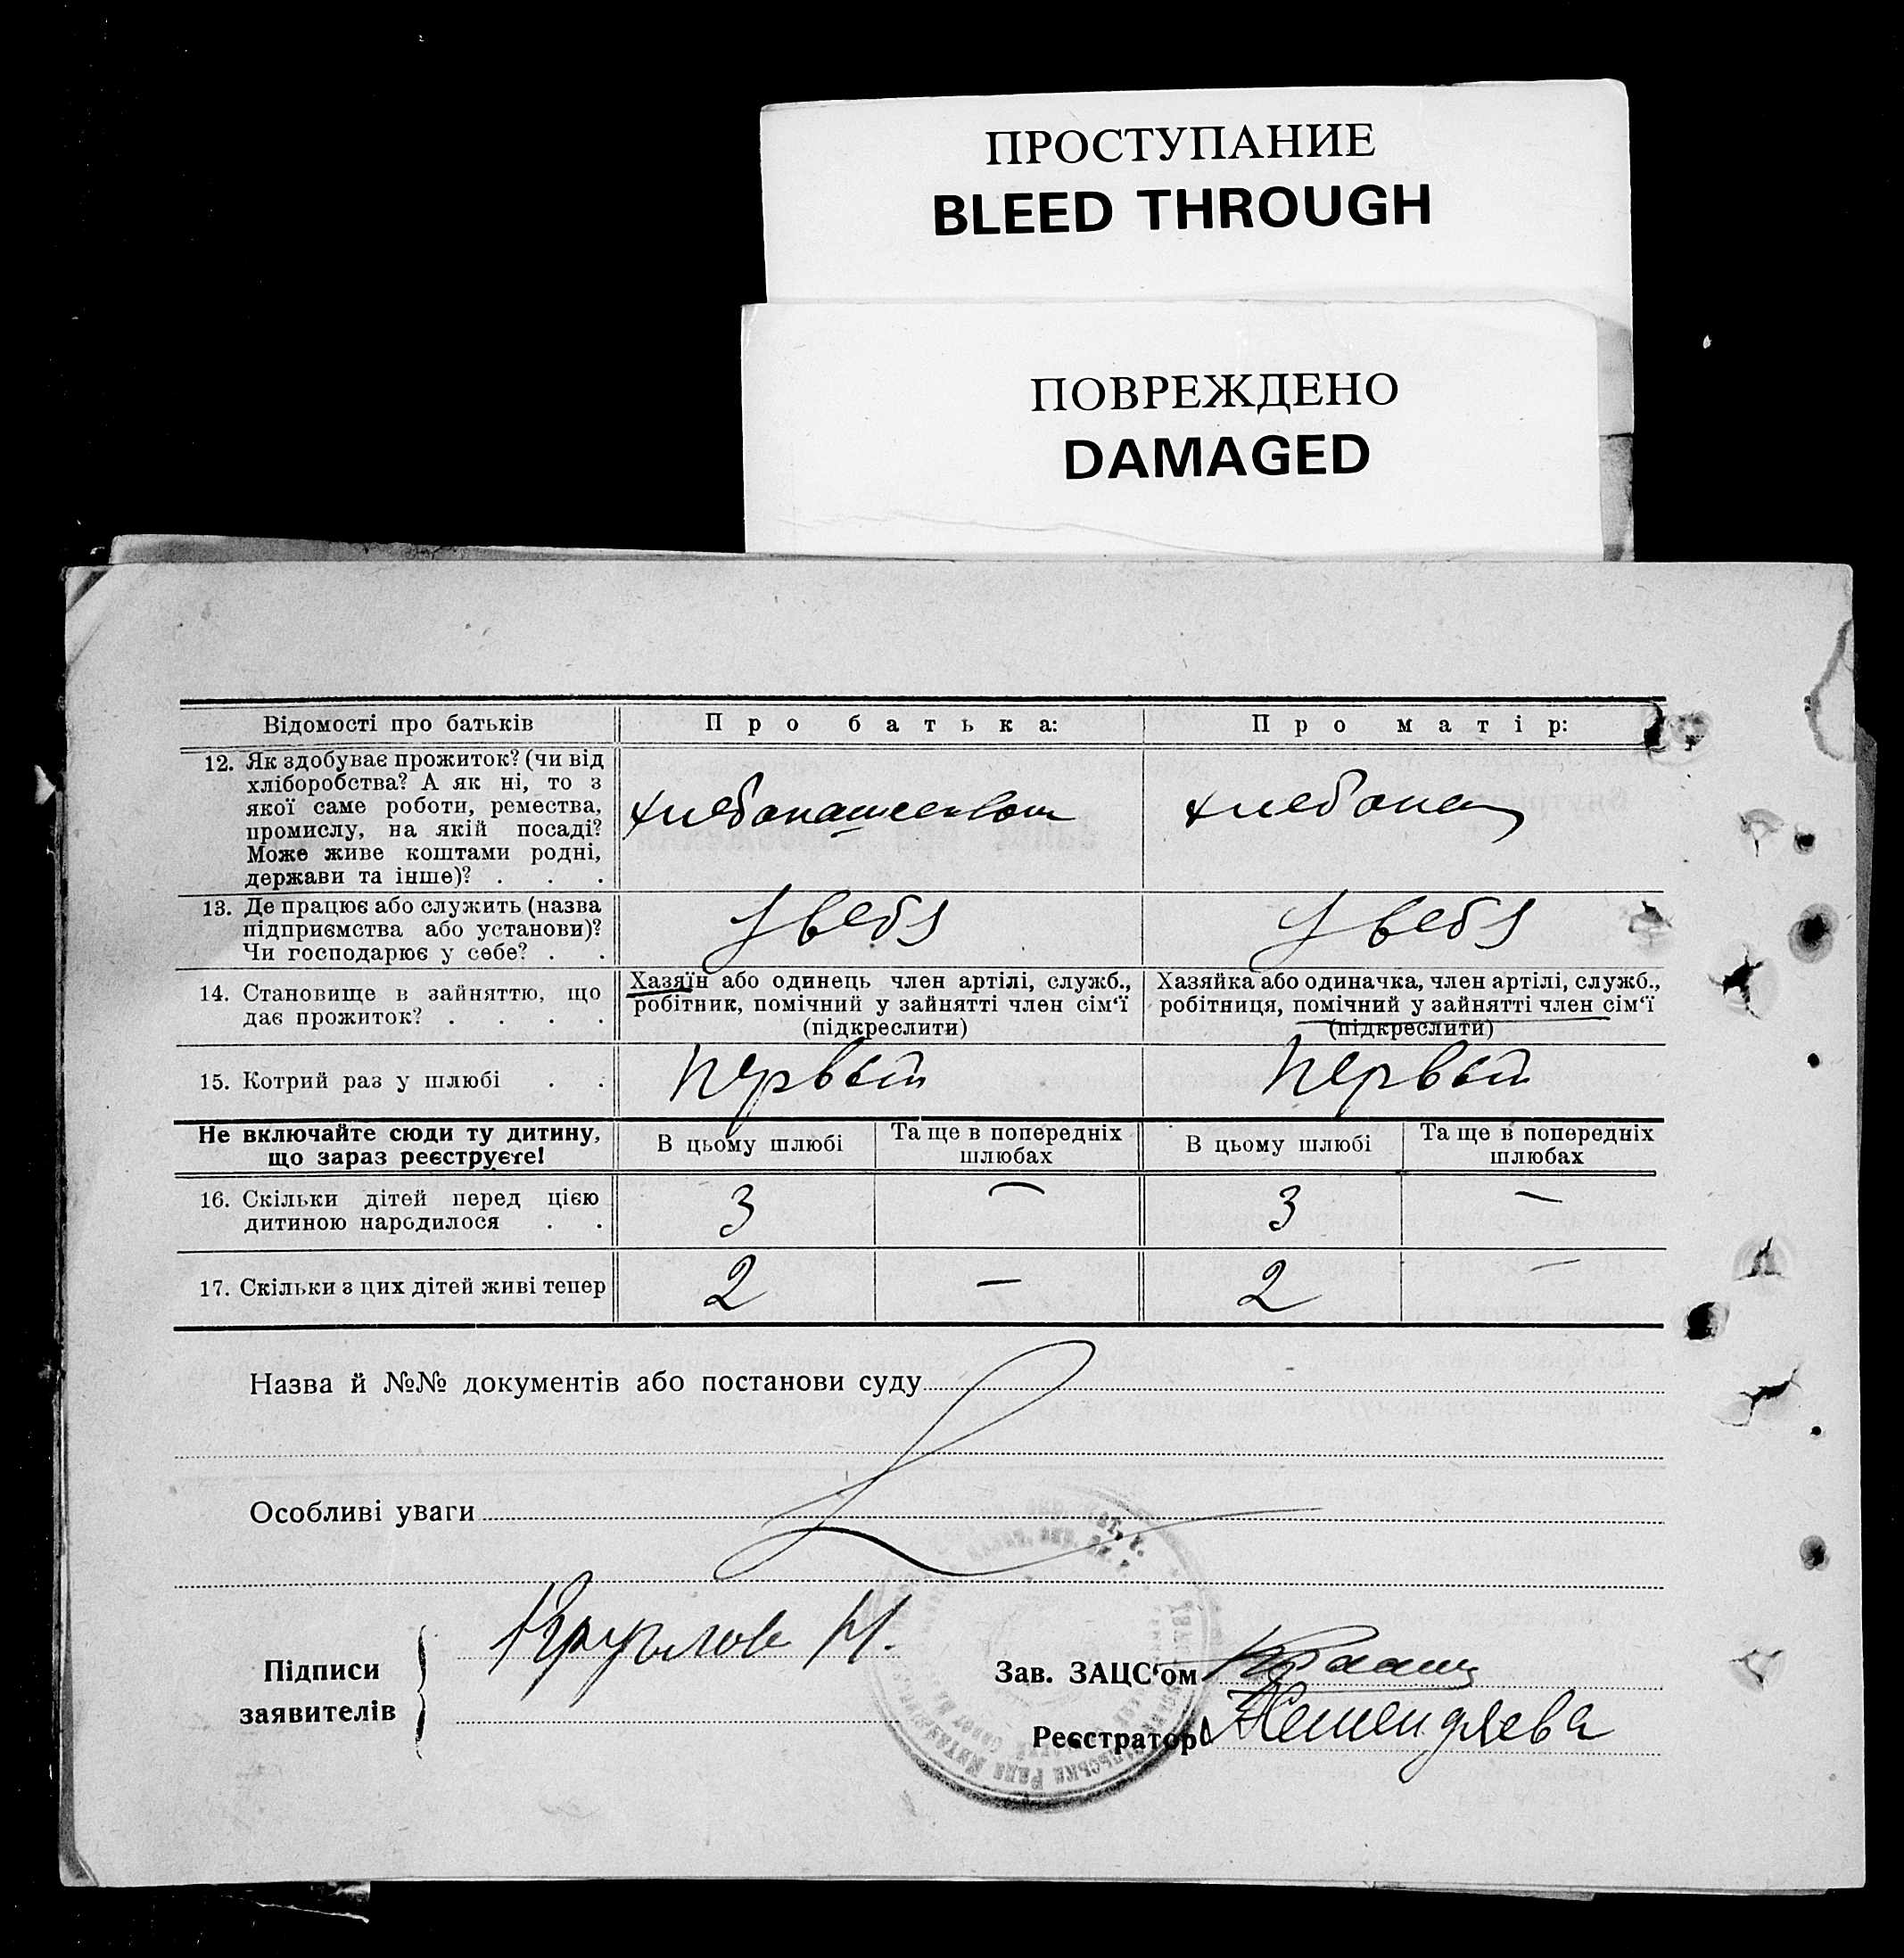 ПРОСТУПАНИЕ
BLEED THROUGH
ПОВРЕЖДЕНО
DAMAGED
Відомості про батьків
Про батька:
Про матір:
12. Як здобуває прожиток? (чи від
хліборобства? А як ні, то з
якої саме роботи, ремества,
промислу, на якій посаді?
Може живе коштами родні,
держави та інше)? . . .
хлебопашеством
хлебопаш
13. Де працює або служить (назва
підприємства або установи)?
Чи господарює у себе? . .
У себя
У себя
14. Становище в зайняттю, що
дає прожиток? . . . .
Хазяїн або одинець член артілі, служб.,
робітник, помічний у зайнятті член сім‘ї
(підкреслити)
Хазяйка або одиначка, член артілі, служб.,
робітниця, помічний у зайнятті член сім‘ї
(підкреслити)
15. Котрий раз у шлюбі . .
Первый
Первый
Не включайте сюди ту дитину,
що зараз реєструєте!
В цьому шлюбі
Та ще в попередніх
шлюбах
В цьому шлюбі
Та ще в попередніх
шлюбах
16. Скільки дітей перед цією
дитиною народилося . .
3 — 3 —
17. Скільки з цих дітей живі тепер
2 — 2 —
Назва й №№ документів або постанови суду
Особливі уваги
Підписи
заявителів
Круглов И.
Зав. ЗАЦС‘ом
Реєстратор